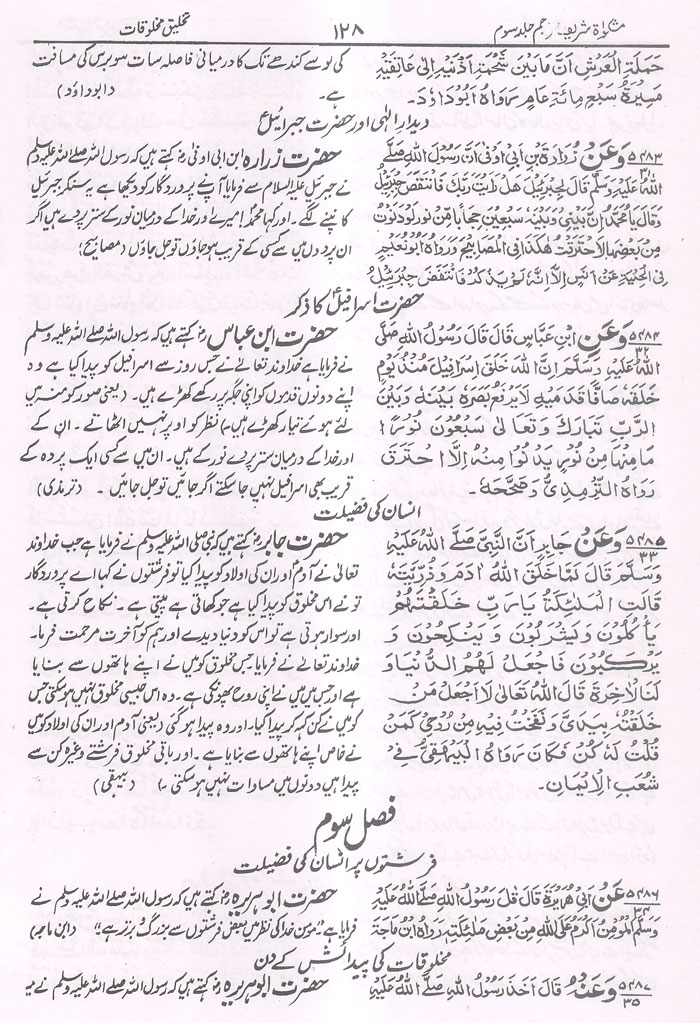 مشکوٰۃ شریف مترجم جلد سوم ۱۲۸ تخلیق مخلوقات
حَمَلَةِ الْعَرْشِ اَنَّ مَا بَيْنَ شَحْمَةِ اُذُنَيْهِ اِلٰى عَاتِقَيْهِ
مَسِيْرَةُ سَبْعِ مِائَةِ عَامٍ رَوَاهُ اَبُوْدَاوٗدَ۔
کی لو سے کندھے تک کا درمیانی فاصلہ سات سو برس کی مسافت
ہے۔ (ابوداؤد)
دیدار الٰہی اور حضرت جبرائیلؑ
۵۴۸۳ وَعَنْ زُرَارَةَ بْنِ اَبِيْ اَوْفٰى اَنَّ رَسُوْلَ اللهِ صَلَّى
اللهُ عَلَيْهِ وَسَلَّمَ قَالَ لِجِبْرَئِيْلَ هَلْ رَاَيْتَ رَبَّكَ فَانْتَفَضَ جِبْرَئِيْلُ
وَقَالَ يَا مُحَمَّدُ اِنَّ بَيْنِيْ وَبَيْنَهٗ سَبْعِيْنَ حِجَابًا مِنْ نُوْرٍ لَوْ دَنَوْتُ
مِنْ بَعْضِهَا لَاحْتَرَقْتُ هٰكَذَا فِي الْمَصَابِيْحِ وَرَوَاهُ اَبُوْ نُعَيْمٍ
فِي الْحِلْيَةِ عَنْ اَنَسٍ اِلَّا اَنَّهٗ لَمْ يَذْكُرْ فَانْتَفَضَ جِبْرَئِيْلُ
حضرت زرارہ ابن ابی اوفیٰ رضہ کہتے ہیں کہ رسول اللہ صلے اللہ علیہ وسلم
نے جبرئیل علیہ السلام سے فرمایا آپنے پروردگار کو دیکھا ہے یہ سنکر جبرئیل
کانپنے لگے۔ اور کہا محمدؐ! میرے اور خدا کے درمیان نور کے ستر پردے ہیں اگر
ان پردوں میں سے کسی کے قریب ہو جاؤں تو جل جاؤں (مصابیح)
حضرت اسرافیلؑ کا ذکر
۵۴۸۴ وَعَنِ ابْنِ عَبَّاسٍ قَالَ قَالَ رَسُوْلُ اللهِ صَلَّى
۳۲
اللهُ عَلَيْهِ وَسَلَّمَ اِنَّ اللهَ خَلَقَ اِسْرَافِيْلَ مُنْذُ يَوْمَ
خَلَقَهٗ صَافًّا قَدَمَيْهِ لَا يَرْفَعُ بَصَرَهٗ بَيْنَهٗ وَبَيْنَ
الرَّبِّ تَبَارَكَ وَتَعَالٰى سَبْعُوْنَ نُوْرًا
مَا مِنْهَا مِنْ نُوْرٍ يَدْنُوْا مِنْهُ اِلَّا احْتَرَقَ
رَوَاهُ التِّرْمِذِيُّ وَصَحَّحَهٗ۔
حضرت ابن عباس رضہ کہتے ہیں کہ رسول اللہ صلے اللہ علیہ وسلم
نے فرمایا ہے خداوند تعالےٰ نے جس روز سے اسرافیل کو پیدا کیا ہے وہ
اپنے دونوں قدموں کو اپنی جگہ پر رکھے کھڑے ہیں۔ (یعنی صور کو منہ میں
لئے ہوئے تیار کھڑے ہیں) نظر کو اوپر نہیں اٹھاتے۔ ان کے
اور خدا کے درمیان ستر پردے نور کے ہیں۔ ان میں سے کسی ایک پردہ کے
قریب بھی اسرافیل نہیں جا سکتے اگر جائیں تو جل جائیں۔ (ترمذی)
انسان کی فضیلت
۵۴۸۵ وَعَنْ جَابِرٍ اَنَّ النَّبِيَّ صَلَّى اللهُ عَلَيْهِ
۳۳
وَسَلَّمَ قَالَ لَمَّا خَلَقَ اللهُ اٰدَمَ وَذُرِّيَّتَهٗ
قَالَتِ الْمَلٰئِكَةُ يَا رَبِّ خَلَقْتَهُمْ
يَاْكُلُوْنَ وَيَشْرَبُوْنَ وَيَنْكِحُوْنَ وَ
يَرْكَبُوْنَ فَاجْعَلْ لَهُمُ الدُّنْيَا وَ
لَنَا الْاٰخِرَةَ قَالَ اللهُ تَعَالٰى لَا اَجْعَلُ مَنْ
خَلَقْتُهٗ بِيَدَيَّ وَنَفَخْتُ فِيْهِ مِنْ رُّوْحِيْ كَمَنْ
قُلْتُ لَهٗ كُنْ فَكَانَ رَوَاهُ الْبَيْهَقِيُّ فِيْ
شُعَبِ الْاِيْمَانِ۔
حضرت جابر رضہ کہتے ہیں کہ نبی صلی اللہ علیہ وسلم نے فرمایا ہے جب خداوند
تعالیٰ نے آدم اور ان کی اولاد کو پیدا کیا تو فرشتوں نے کہا اے پروردگار
تو نے اس مخلوق کو پیدا کیا ہے جو کھاتی ہے پیتی ہے۔ نکاح کرتی ہے۔
اور سوار ہوتی ہے تو اس کو دنیا دیدے اور ہم کو آخرت مرحمت فرما۔
خداوند تعالےٰ نے فرمایا جس مخلوق کو میں نے اپنے ہاتھوں سے بنایا
ہے اور جس میں میں نے اپنی روح پھونکی ہے۔ وہ اس جیسی مخلوق نہیں ہو سکتی جس
کو میں نے کن کہہ کر پیدا کیا۔ اور وہ پیدا ہو گئی (یعنی آدم اور ان کی اولاد کو میں
نے خاص اپنے ہاتھوں سے بنایا ہے۔ اور باقی مخلوق فرشتے وغیرہ کن سے
پیدا ہیں دونوں میں مساوات نہیں ہو سکتی۔) (بیہقی)
فصل سوم
فرشتوں پر انسان کی فضیلت
۵۴۸۶ عَنْ اَبِيْ هُرَيْرَةَ قَالَ قَالَ رَسُوْلُ اللهِ صَلَّى اللهُ عَلَيْهِ
۳۴
وَسَلَّمَ الْمُؤْمِنُ اَكْرَمُ عَلَى اللهِ مِنْ بَعْضِ مَلٰئِكَتِهٖ رَوَاهُ ابْنُ مَاجَةَ
حضرت ابو ہریرہ رضہ کہتے ہیں کہ رسول اللہ صلے اللہ علیہ وسلم نے
فرمایا ہے۔ مومن خدا کی نظر میں بعض فرشتوں سے بزرگ و برتر ہے۔ (ابن ماجہ)
مخلوقات کی پیدائش کے دن
۵۴۸۷ وَعَنْهُ قَالَ اَخَذَ رَسُوْلُ اللهِ صَلَّى اللهُ عَلَيْهِ
۳۵
حضرت ابوہریرہ رضہ کہتے ہیں کہ رسول اللہ صلے اللہ علیہ وسلم نے میرا